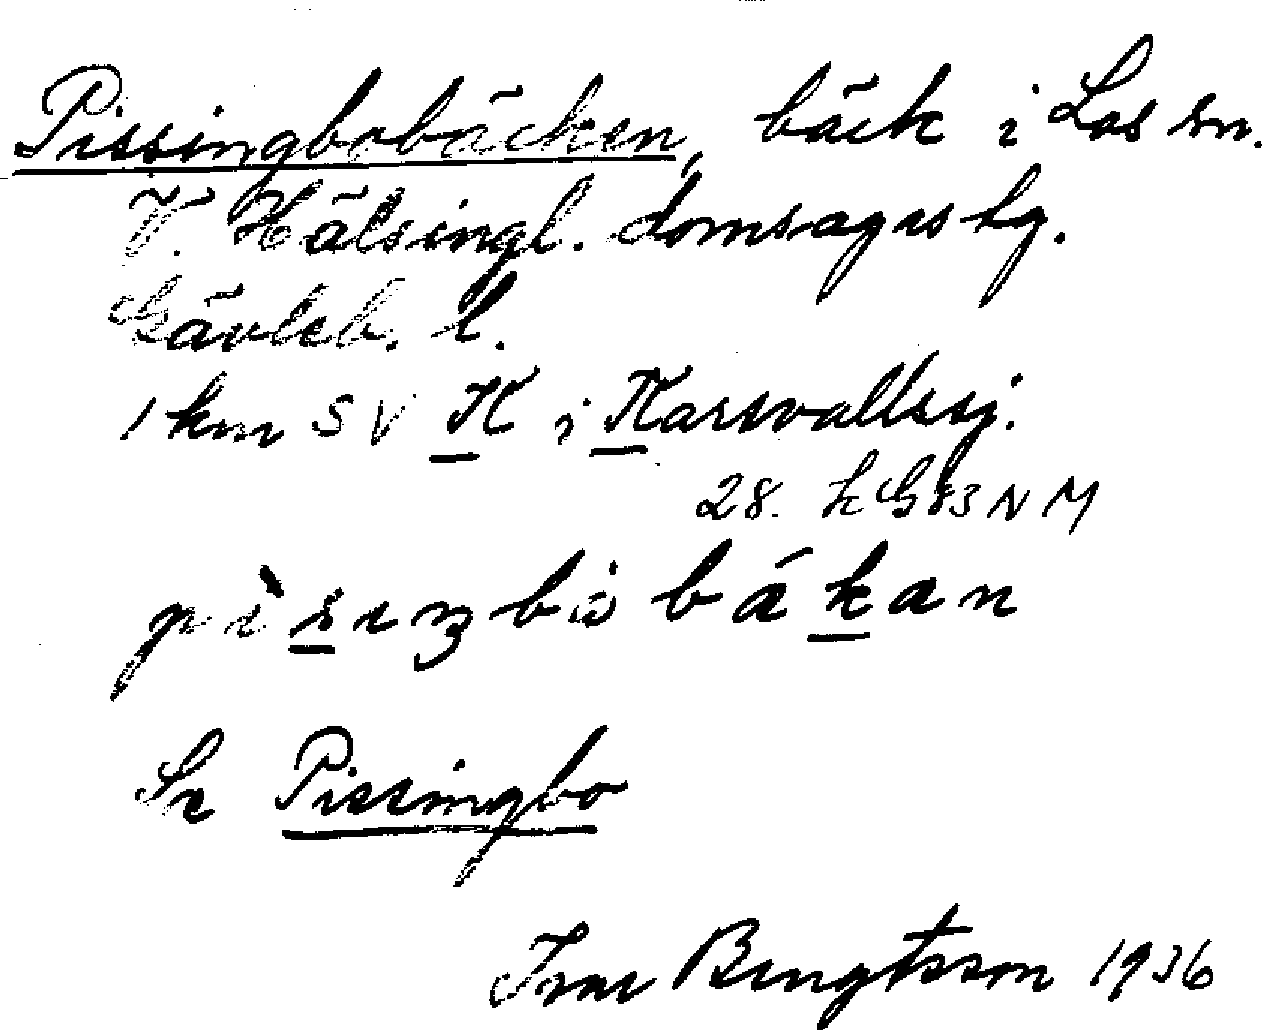 Pissingbobäcken, bäck i Los sn.
V. Hälsingl. domsagas tg.
Gävleb. l.
1 km SV K i Karsvallssj.
28.
pisiŋbobäkan
Se Pissingbo
Bengtsson 1936